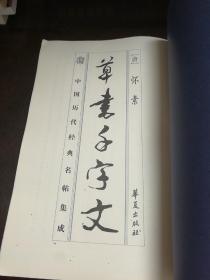 [唐]
怀素
草书千字文
中国历代经典名帖集成
华夏出版社